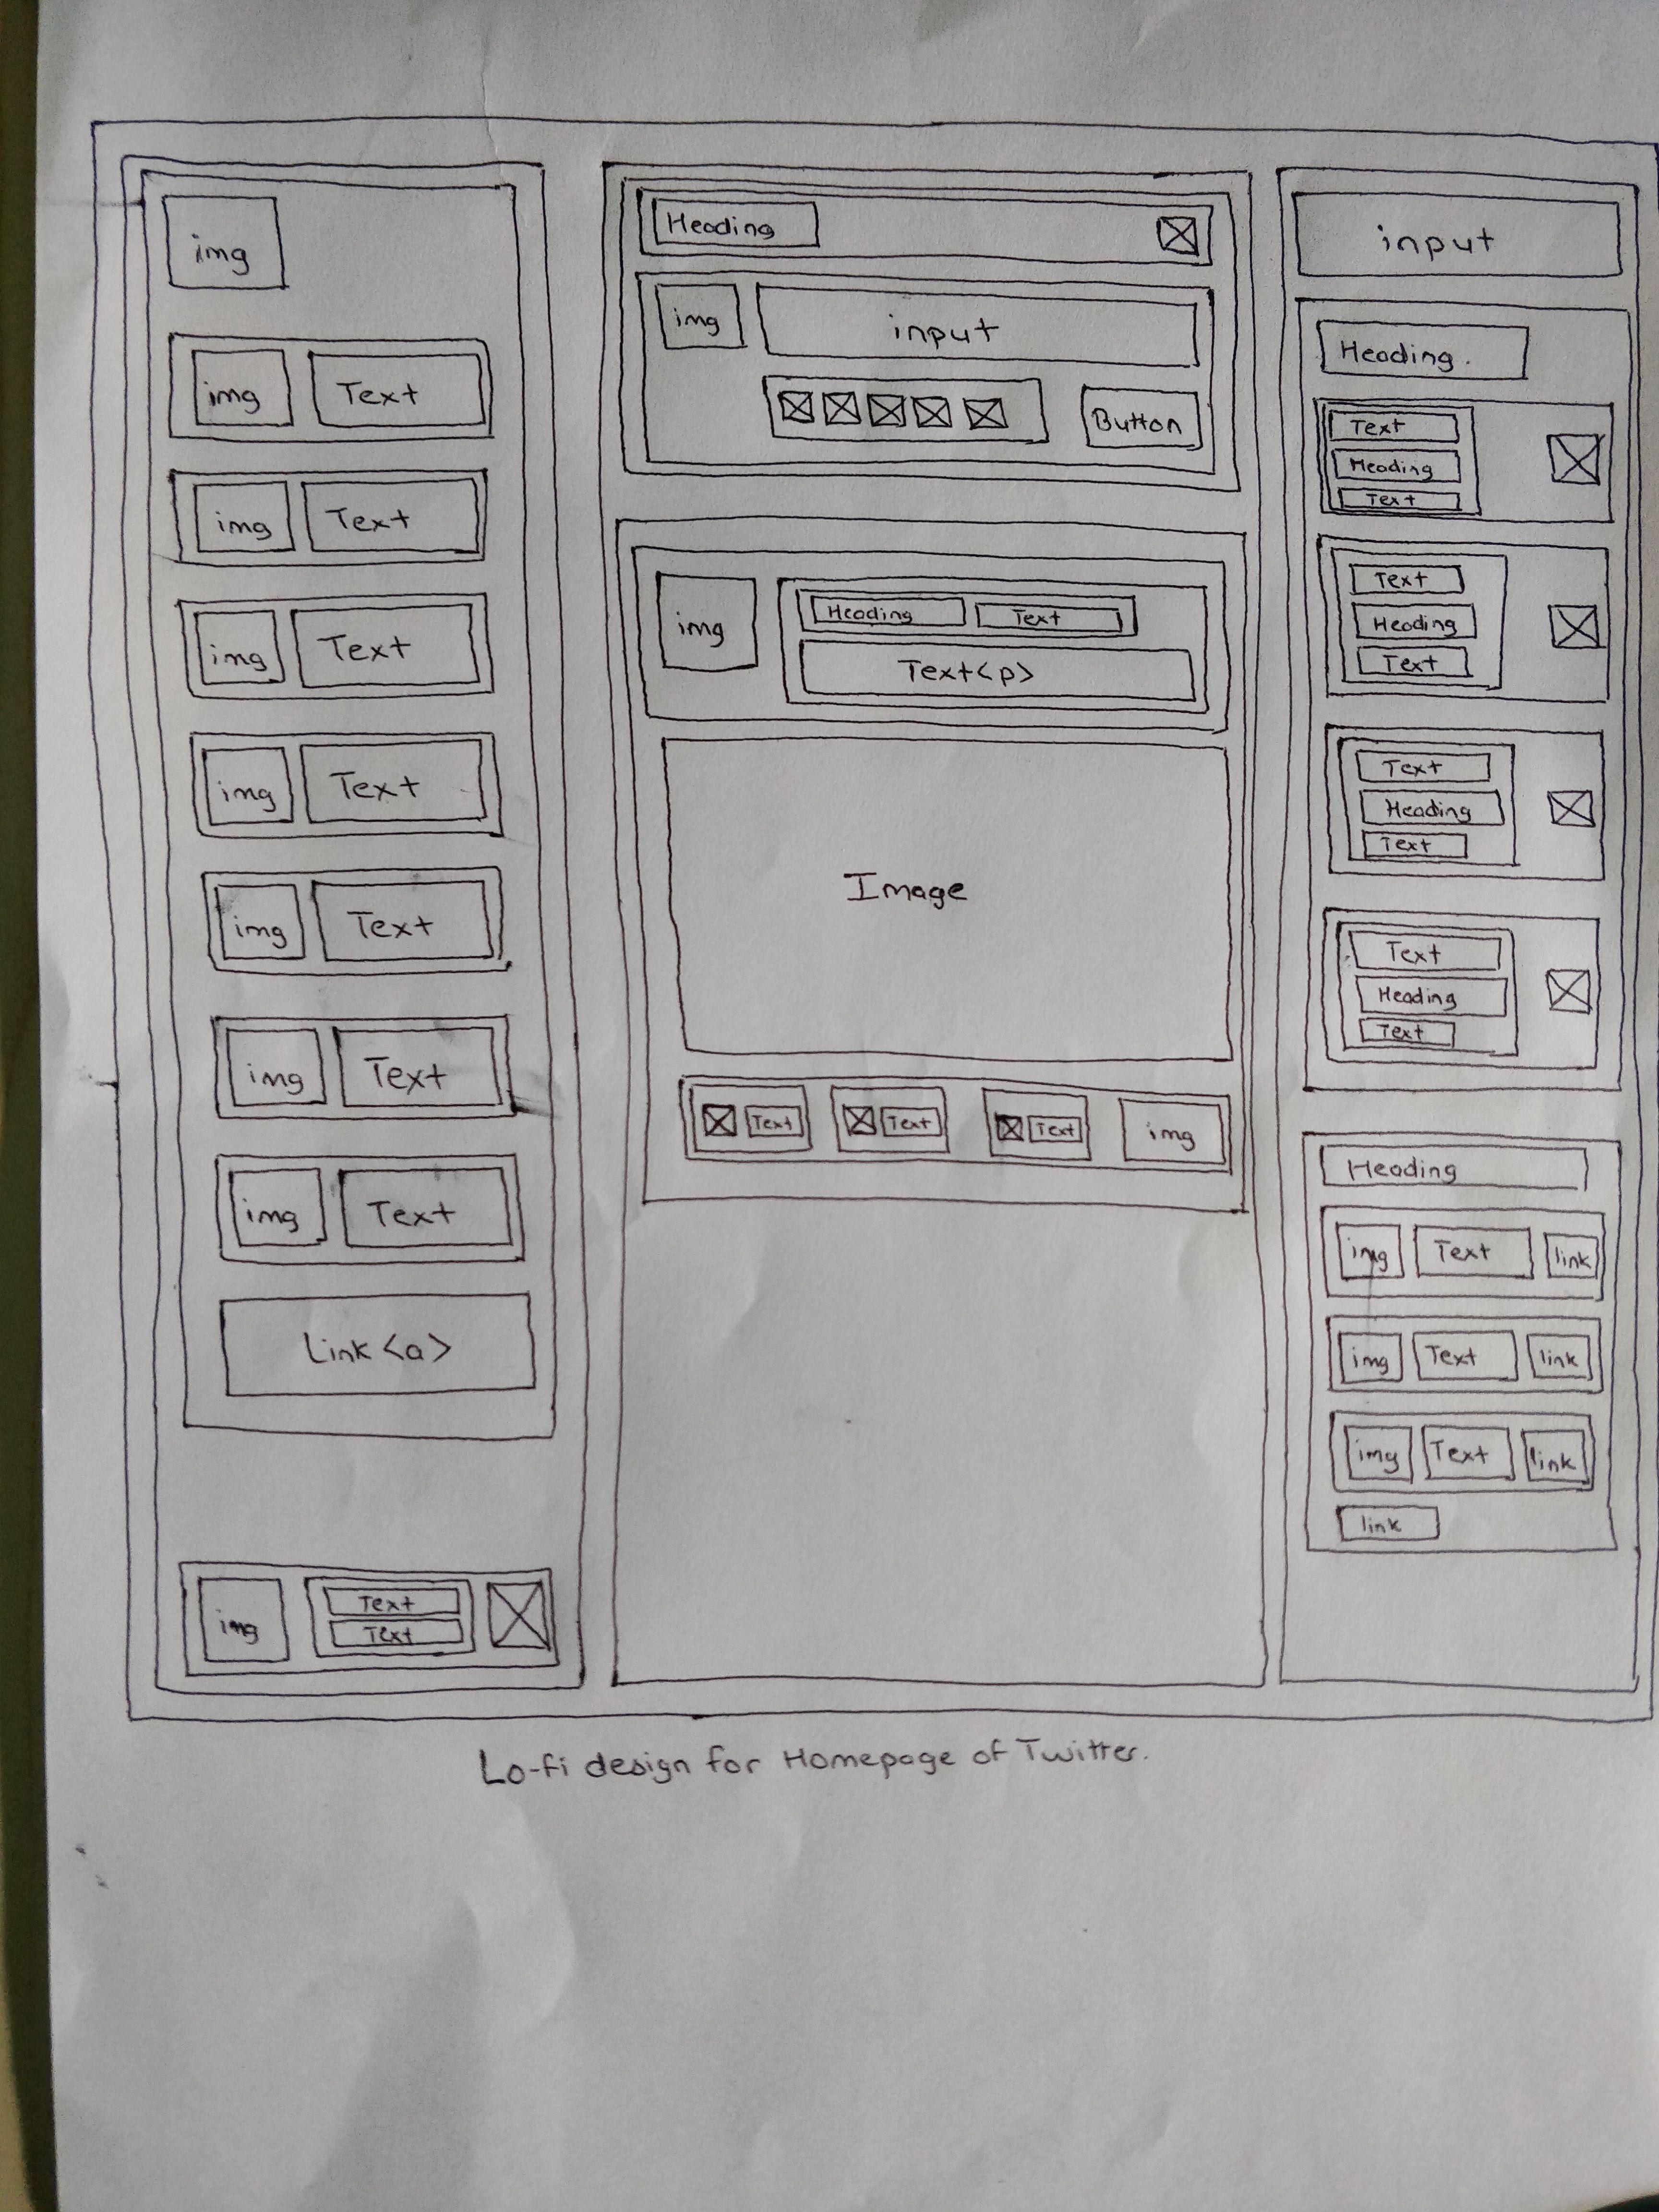 img
img Text
img Text
img Text
img Text
img Text
img Text
img Text
Link <a>
img
Text
Text
Heading
img input
Button
img
Heading Text
Text <p>
Image
Text Text Text img
input
Heading.
Text
Heading
Text
Text
Heading
Text
Text
Heading
Text
Text
Heading
Text
Heading
img Text link
img Text link
img Text link
link
Lo-fi design for Homepage of Twitter.